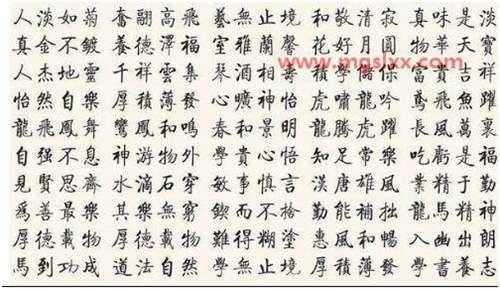 人淡如菊 奮翮高飛 藝無止境 和敬清寂 真味是淡
真金不鍍 養德澤福 室雅蘭馨 花好月圓 物華天寶
人杰地靈 千祥雲集 琴酒相 積學儲 富貴吉祥
怡然自樂 厚積薄發 心曠神怡 虎嘯龍吟 鳶飛魚躍
龍飛鳳舞 鸞鳳和鳴 春和景明 龍騰虎躍 長風萬裏
自强不息 神游物外 學貴心悟 知足常樂 吃虧是福
見賢思齊 水滴石穿 敏事慎言 漢唐雄風 業精于勤
爲善最樂 其樂無窮 鍥而不捨 勤能補拙 龍馬精神
厚德載物 厚德載物 難得糊塗 惠風和暢 入幽出朗
馬到功成 道法自然 學無止境 厚積薄發 學書養志
www.mqslxx.com